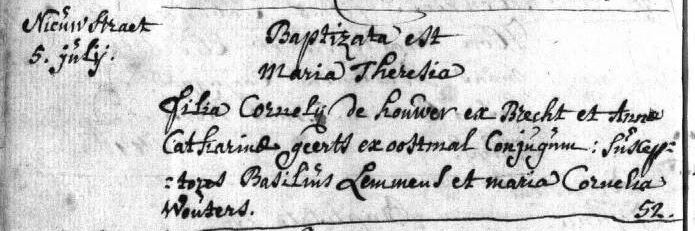 Nieuwstraet
5. july.
Baptizata est
Maria Theresia
filia Cornelij de houwer ex Brecht et Annæ
Catharinæ geerts ex oostmal Conjugum: Suscep:
:tores Basilius Lemmens et maria Cornelia
Wouters.
52.